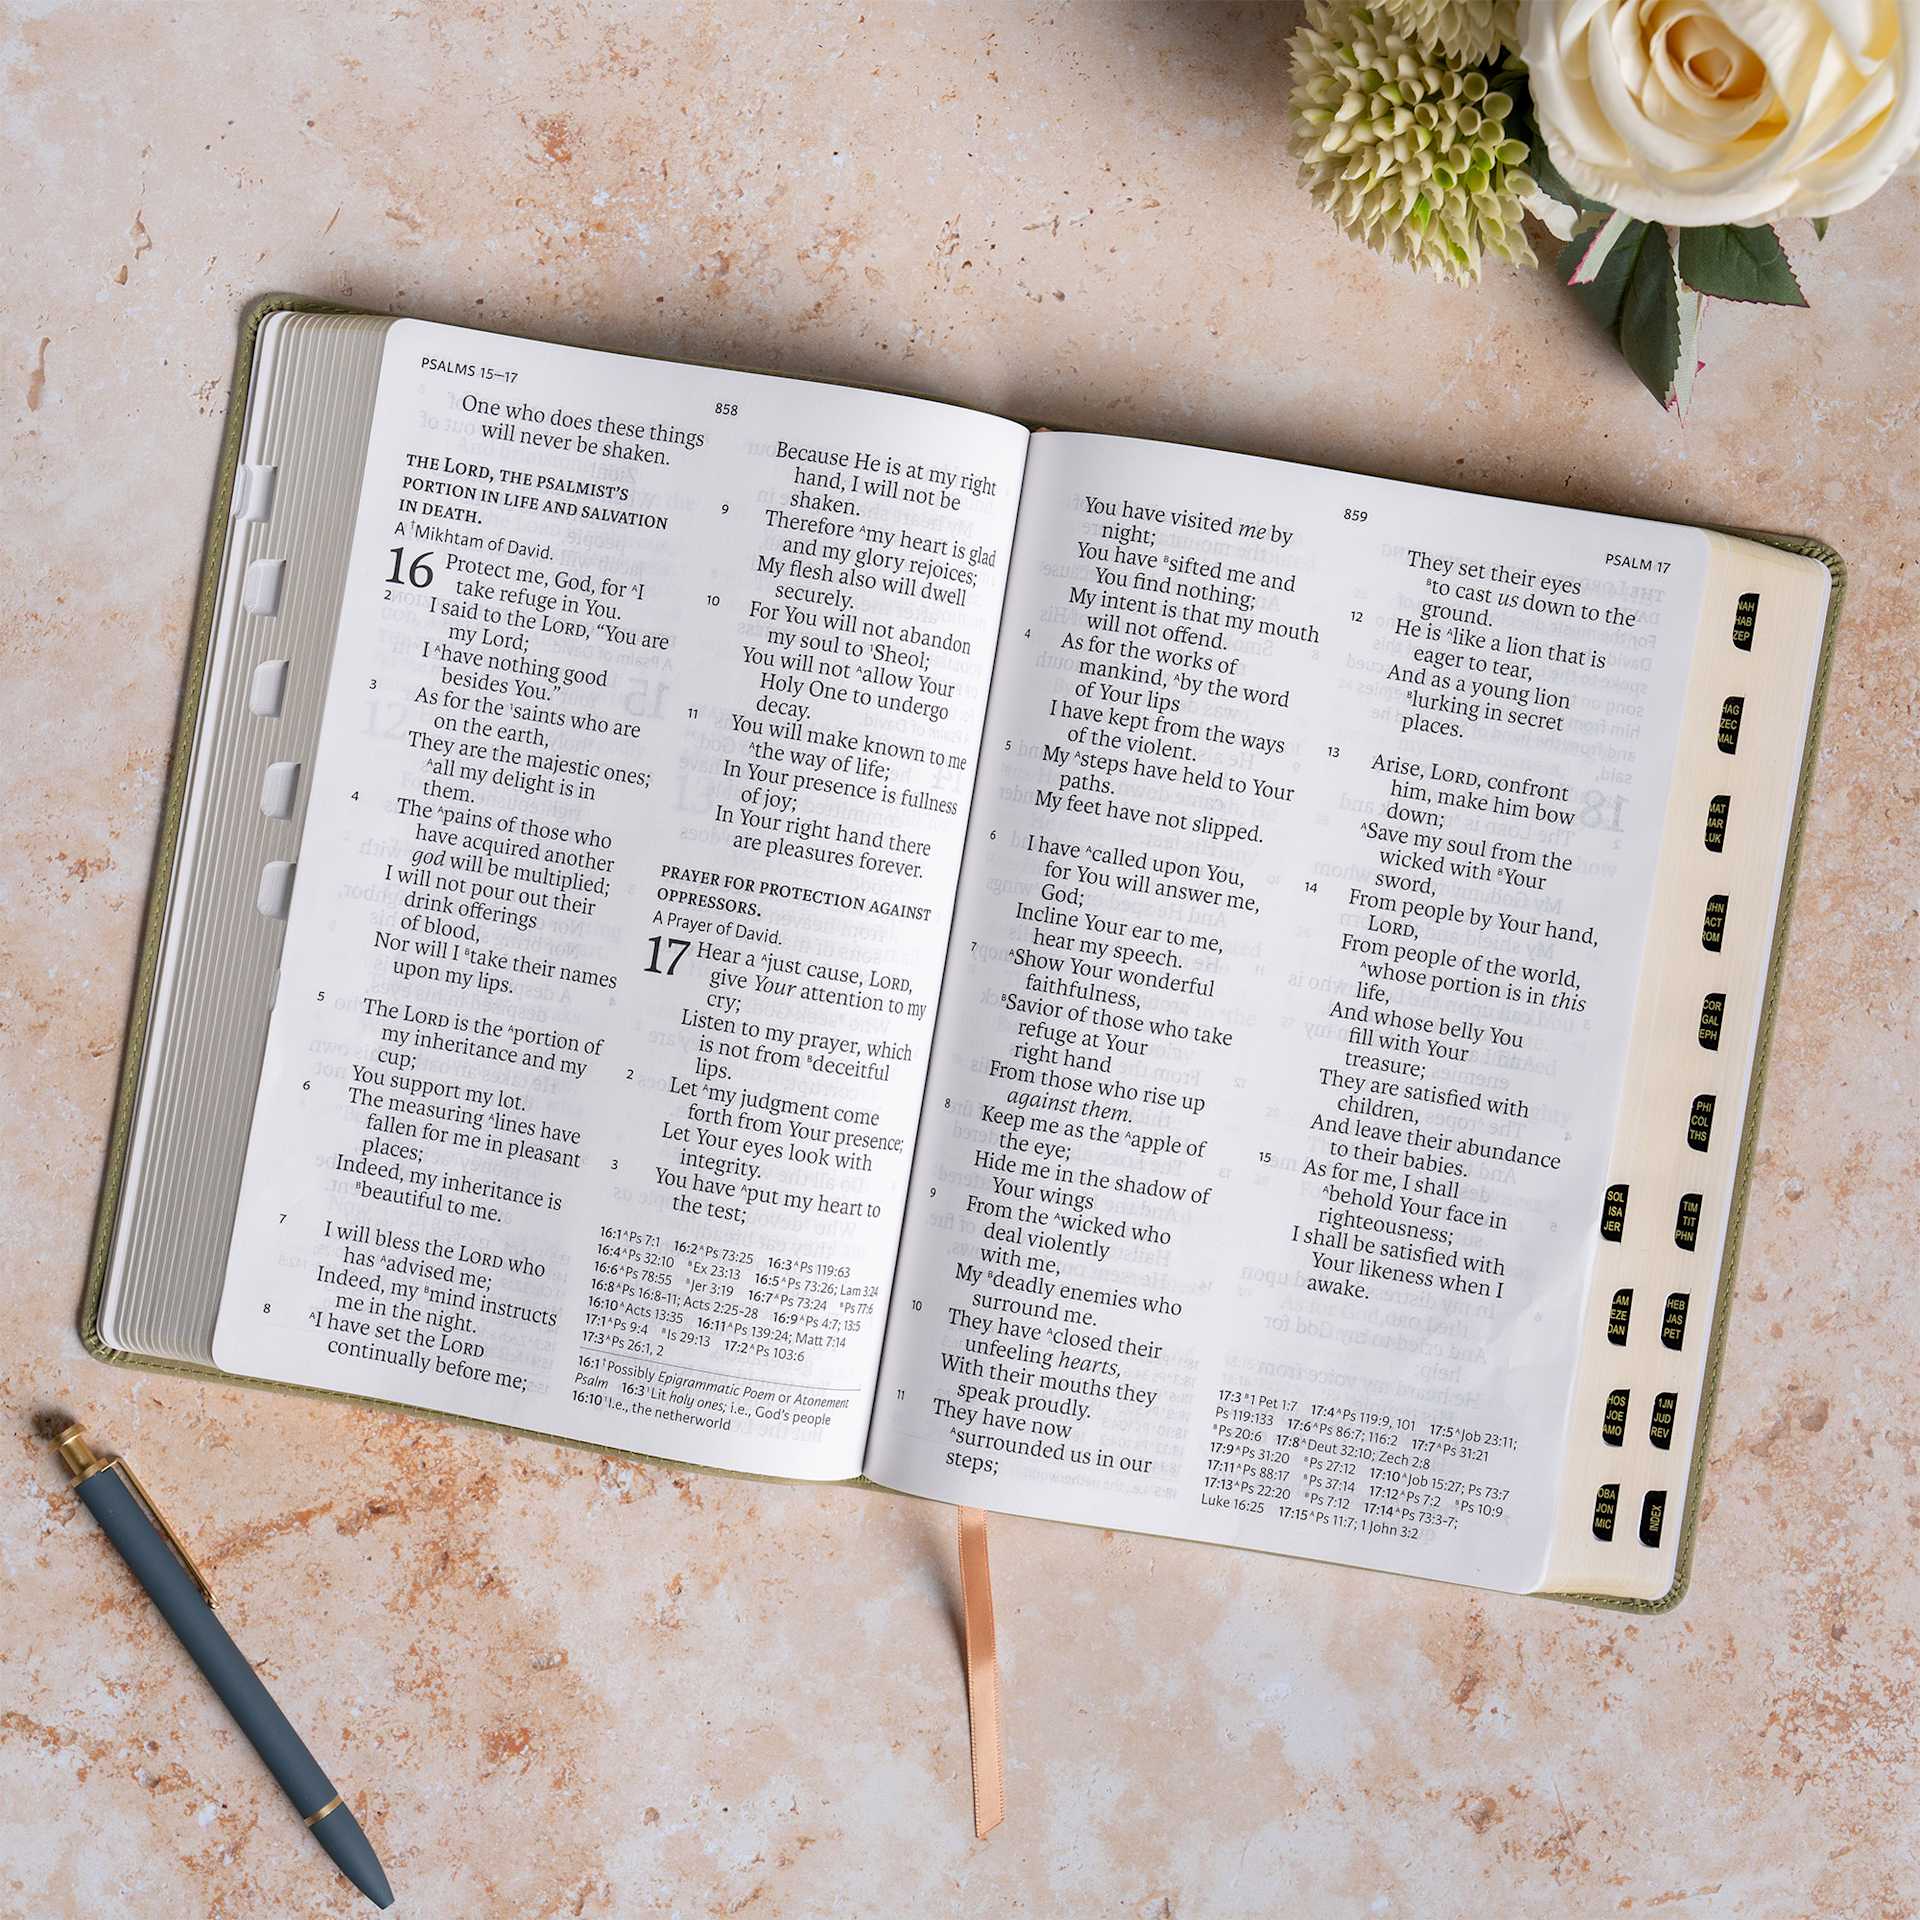 PSALMS 15–17
858
One who does these things
will never be shaken.
THE LORD, THE PSALMIST'S
PORTION IN LIFE AND SALVATION
IN DEATH.
A †Mikhtam of David.
16 Protect me, God, for ᴬI
take refuge in You.
2 I said to the LORD, “You are
my Lord;
I ᴬhave nothing good
besides You.”
3 As for the ¹saints who are
on the earth,
They are the majestic ones;
ᴬall my delight is in
them.
4 The ᴬpains of those who
have acquired another
god will be multiplied;
I will not pour out their
drink offerings
of blood,
Nor will I ᴮtake their names
upon my lips.
5 The LORD is the ᴬportion of
my inheritance and my
cup;
You support my lot.
6 The measuring ᴬlines have
fallen for me in pleasant
places;
Indeed, my inheritance is
ᴮbeautiful to me.
7 I will bless the LORD who
has ᴬadvised me;
Indeed, my ᴮmind instructs
me in the night.
8 ᴬI have set the LORD
continually before me;
Because He is at my right
hand, I will not be
shaken.
9 Therefore ᴬmy heart is glad
and my glory rejoices;
My flesh also will dwell
securely.
10 For You will not abandon
my soul to ¹Sheol;
You will not ᴬallow Your
Holy One to undergo
decay.
11 You will make known to me
ᴬthe way of life;
In Your presence is fullness
of joy;
In Your right hand there
are pleasures forever.
PRAYER FOR PROTECTION AGAINST
OPPRESSORS.
A Prayer of David.
17 Hear a ᴬjust cause, LORD,
give Your attention to my
cry;
Listen to my prayer, which
is not from ᴮdeceitful
lips.
2 Let ᴬmy judgment come
forth from Your presence;
Let Your eyes look with
integrity.
3 You have ᴬput my heart to
the test;
16:1 ᴬPs 7:1 16:2 ᴬPs 73:25 16:3 ᴬPs 119:63
16:4 ᴬPs 32:10 ᴮEx 23:13 16:5 ᴬPs 73:26; Lam 3:24
16:6 ᴬPs 78:55 ᴮJer 3:19 16:7 ᴬPs 73:24 ᴮPs 77:6
16:8 ᴬPs 16:8-11; Acts 2:25-28 16:9 ᴬPs 4:7; 13:5
16:10 ᴬActs 13:35 16:11 ᴬPs 139:24; Matt 7:14
17:1 ᴬPs 9:4 ᴮIs 29:13 17:2 ᴬPs 103:6
17:3 ᴬPs 26:1, 2
16:1 †Possibly Epigrammatic Poem or Atonement
Psalm 16:3 ¹Lit holy ones; i.e., God's people
16:10 ¹I.e., the netherworld
859
PSALM 17
You have visited me by
night;
You have ᴮsifted me and
You find nothing;
My intent is that my mouth
will not offend.
4 As for the works of
mankind, ᴬby the word
of Your lips
I have kept from the ways
of the violent.
5 My ᴬsteps have held to Your
paths.
My feet have not slipped.
6 I have ᴬcalled upon You,
for You will answer me,
God;
Incline Your ear to me,
hear my speech.
7 ᴬShow Your wonderful
faithfulness,
ᴮSavior of those who take
refuge at Your
right hand
From those who rise up
against them.
8 Keep me as the ᴬapple of
the eye;
Hide me in the shadow of
Your wings
9 From the ᴬwicked who
deal violently
with me,
My ᴮdeadly enemies who
surround me.
10 They have ᴬclosed their
unfeeling hearts,
With their mouths they
speak proudly.
11 They have now
ᴬsurrounded us in our
steps;
They set their eyes
ᴮto cast us down to the
ground.
12 He is ᴬlike a lion that is
eager to tear,
And as a young lion
ᴮlurking in secret
places.
13 Arise, LORD, confront
him, make him bow
down;
ᴬSave my soul from the
wicked with ᴮYour
sword,
14 From people by Your hand,
LORD,
From people of the world,
ᴬwhose portion is in this
life,
And whose belly You
fill with Your
treasure;
They are satisfied with
children,
And leave their abundance
to their babies.
15 As for me, I shall
ᴬbehold Your face in
righteousness;
I shall be satisfied with
Your likeness when I
awake.
17:3 ᴮ1 Pet 1:7 17:4 ᴬPs 119:9, 101 17:5 ᴬJob 23:11;
Ps 119:133 17:6 ᴬPs 86:7; 116:2 17:7 ᴬPs 31:21
ᴮPs 20:6 17:8 ᴬDeut 32:10; Zech 2:8
17:9 ᴬPs 31:20 ᴮPs 27:12 17:10 ᴬJob 15:27; Ps 73:7
17:11 ᴬPs 88:17 ᴮPs 37:14 17:12 ᴬPs 7:2 ᴮPs 10:9
17:13 ᴬPs 22:20 ᴮPs 7:12 17:14 ᴬPs 73:3-7;
Luke 16:25 17:15 ᴬPs 11:7; 1 John 3:2
NAH
HAB
ZEP
HAG
ZEC
MAL
MAT
MAR
LUK
JHN
ACT
ROM
COR
GAL
EPH
PHI
COL
THS
SOL
ISA
JER
TIM
TIT
PHN
LAM
EZE
DAN
HEB
JAS
PET
HOS
JOE
AMO
1JN
JUD
REV
OBA
JON
MIC
INDEX